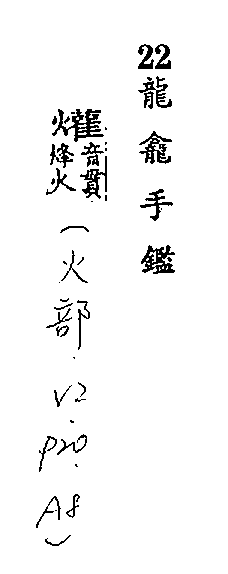 22龍龕手鑑
爟音貫烽火
(火部.V2.P20.A8)